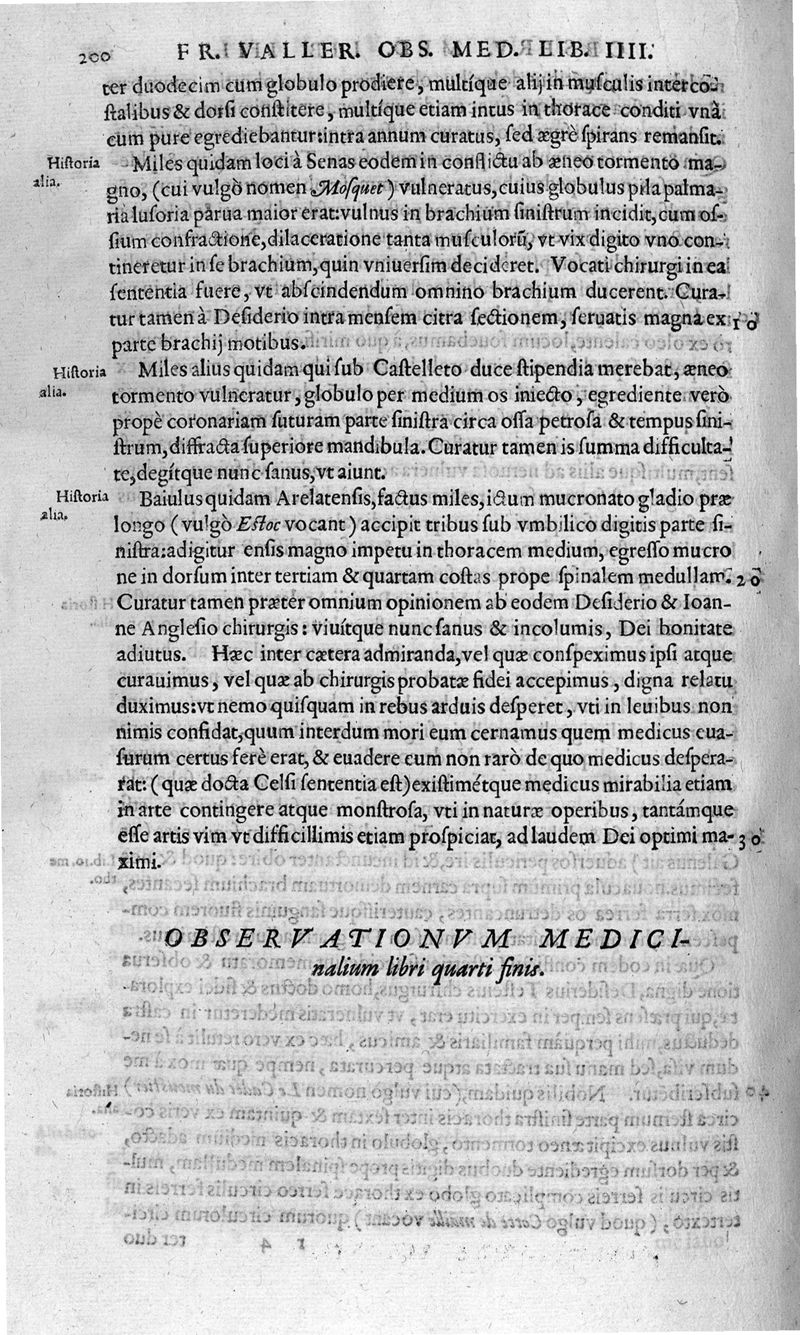 200 FR. VALLER. OBS. MED. LIB. IIII.
ter duodecim cum globulo prodiere, multíque alij in muſculis interco-
ſtalibus & dorſi conſtitere, multíque etiam intus in thorace conditi vnà
cum pure egrediebantur: intra annum curatus, ſed ægrè ſpirans remanſit.
Hiſtoria Miles quidam loci à Senas eodem in conflictu ab æneo tormento ma-
alia. gno, (cui vulgò nomen Moſquet) vulneratus, cuius globulus pila palma-
ria luſoria parua maior erat: vulnus in brachium ſiniſtrum incidit, cum oſ-
ſium confractione, dilaceratione tanta muſculorũ, vt vix digito vno con-
tineretur in ſe brachium, quin vniuerſim decideret. Vocati chirurgi in ea
ſententia fuere, vt abſcindendum omnino brachium ducerent. Cura-
tur tamen à Deſiderio intra menſem citra ſectionem, ſeruatis magna ex 10
parte brachij motibus.
Hiſtoria Miles alius quidam qui ſub Caſtelleto duce ſtipendia merebat, æneo
alia. tormento vulneratur, globulo per medium os iniecto, egrediente verò
propè coronariam ſuturam parte ſiniſtra circa oſſa petroſa & tempus ſini-
ſtrum, diffracta ſuperiore mandibula. Curatur tamen is ſumma difficulta-
te, degítque nunc ſanus, vt aiunt.
Hiſtoria Baiulus quidam Arelatenſis, factus miles, ictum mucronato gladio præ
alia. longo (vulgò Eſtoc vocant) accipit tribus ſub vmbilico digitis parte ſi-
niſtra: adigitur enſis magno impetu in thoracem medium, egreſſo mucro
ne in dorſum inter tertiam & quartam coſtas prope ſpinalem medullam. 20
Curatur tamen præter omnium opinionem ab eodem Deſiderio & Ioan-
ne Angleſio chirurgis: viuítque nunc ſanus & incolumis, Dei bonitate
adiutus. Hæc inter cætera admiranda, vel quæ conſpeximus ipſi atque
curauimus, vel quæ ab chirurgis probatæ fidei accepimus, digna relatu
duximus: vt nemo quiſquam in rebus arduis deſperet, vti in leuibus non
nimis confidat, quum interdum mori eum cernamus quem medicus eua-
ſurum certus ferè erat, & euadere eum non rarò de quo medicus deſpera-
rat: (quæ docta Celſi ſententia eſt) exiſtimétque medicus mirabilia etiam
in arte contingere atque monſtroſa, vti in naturæ operibus, tantámque
eſſe artis vim vt difficillimis etiam proſpiciat, ad laudem Dei optimi ma- 30
ximi.
OBSERVATIONVM MEDICI-
nalium libri quarti finis.